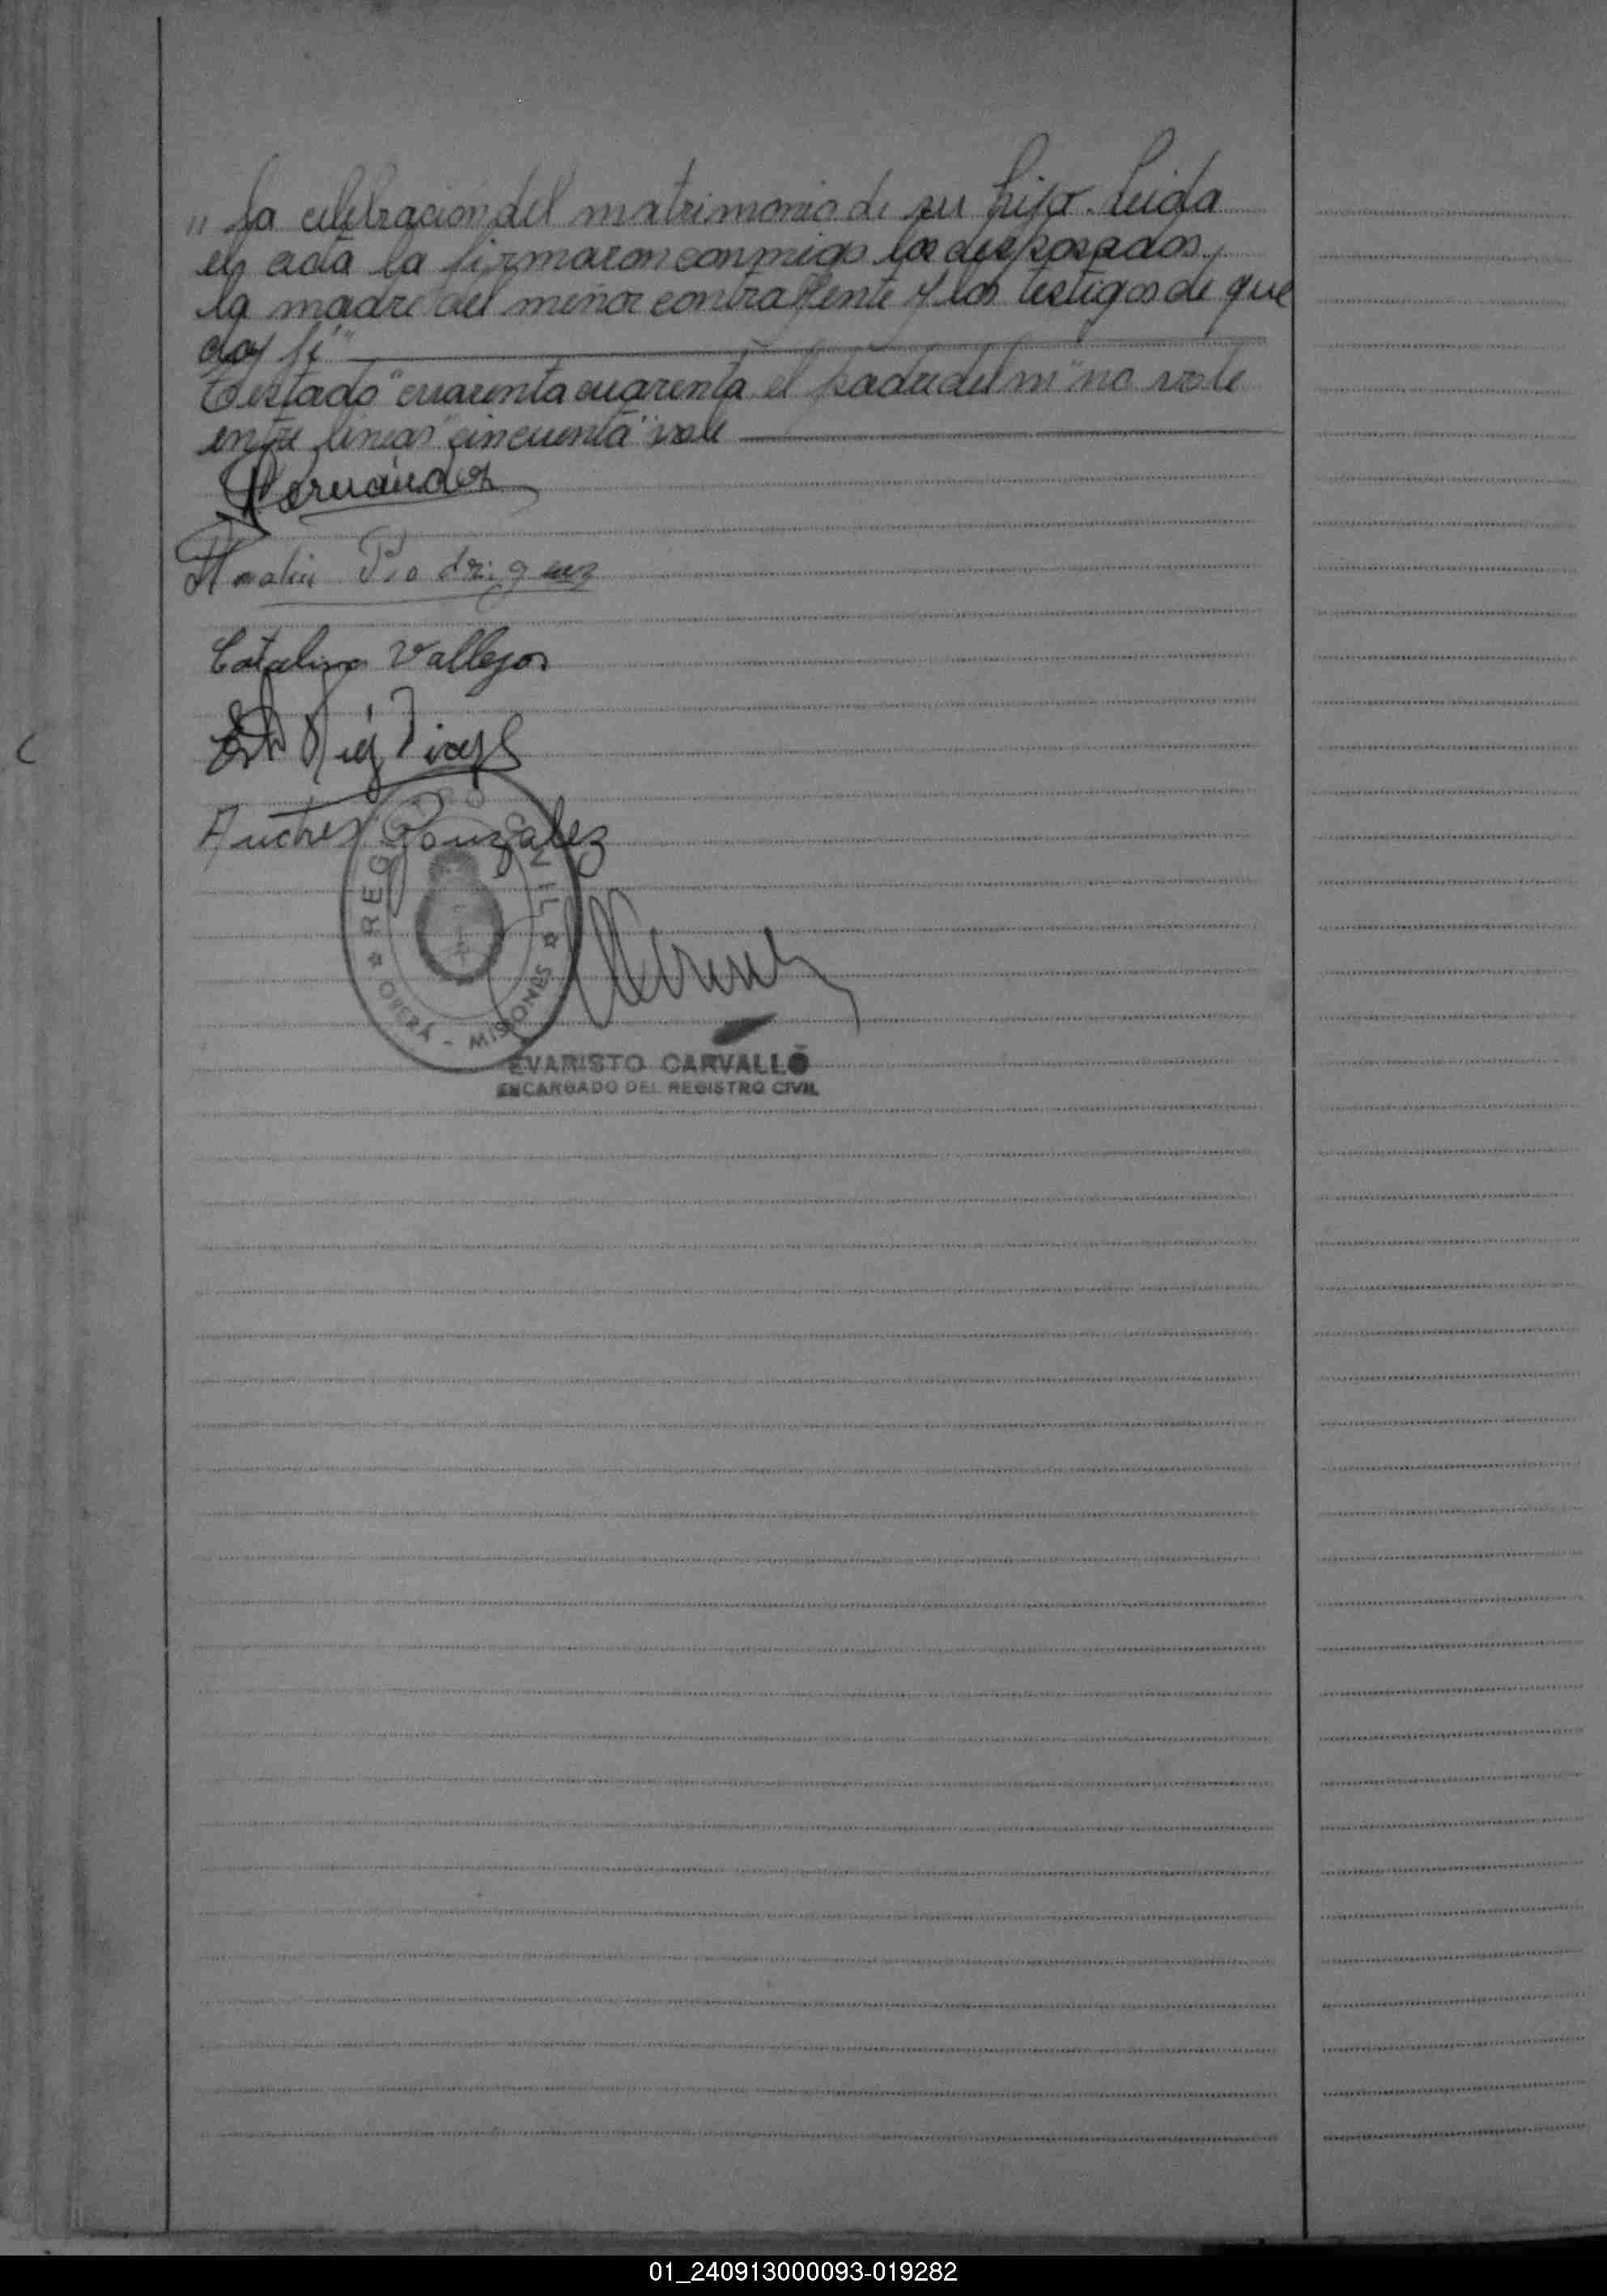 " la celebración del matrimonio de su hijo. Leida
el acta la firmaron conmigo los desposados,
la madre del menor contrayente y los testigos de que
doy fé"
Testado "cuarenta cuarenta el padre del m" no vale
entre lineas "cincuenta" vale
Hernández
Amalia Rodriguez
Catalina Vallejos
Andres Gonzalez
REGISTRO CIVIL
OBERÁ - MISIONES
EVARISTO CARVALLO
ENCARGADO DEL REGISTRO CIVIL
01_240913000093-019282